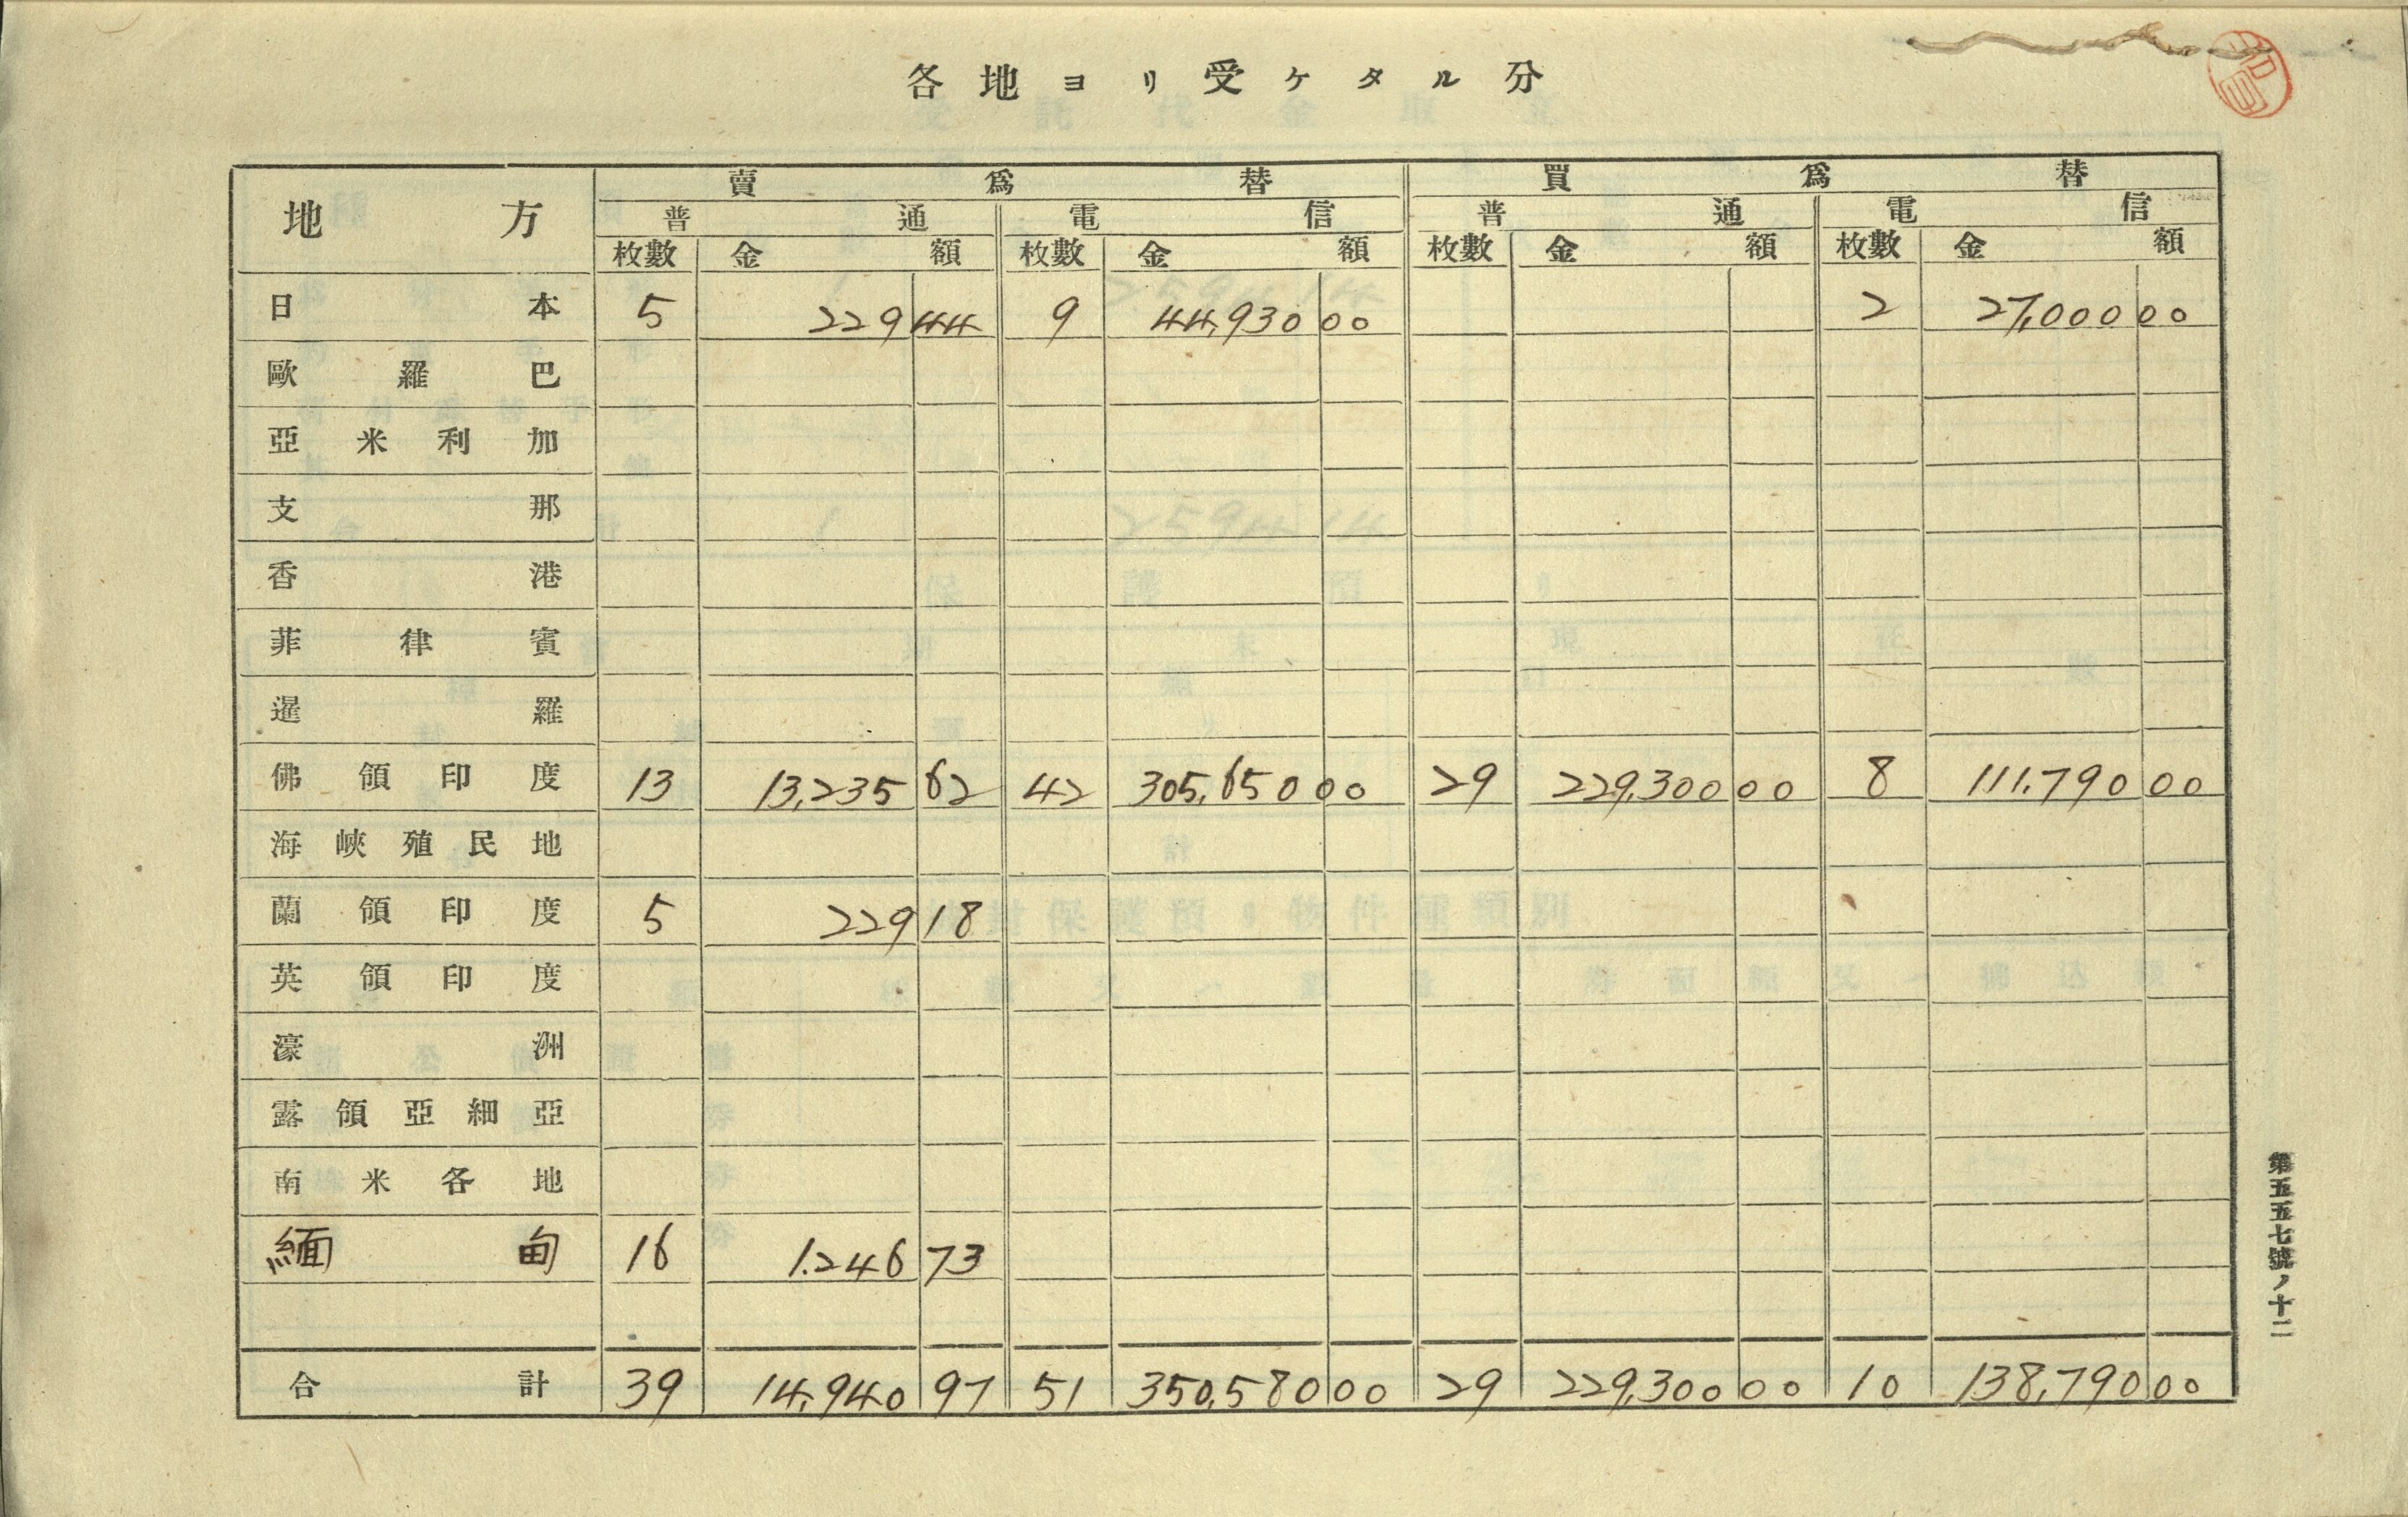 各地ヨリ受ケタル分
地方 賣爲替 買爲替
普通 電信 普通 電信
枚數 金額 枚數 金額 枚數 金額 枚數 金額
日本 5 229 44 9 44,930 00 2 27,000 00
歐羅巴
亞米利加
支那
香港
菲律賓
暹羅
佛領印度 13 13,235 62 42 305,650 00 29 229,300 00 8 111,790 00
海峽殖民地
蘭領印度 5 229 18
英領印度
濠洲
露領亞細亞
南米各地
緬甸 16 1.246 73
合計 39 14,940 97 51 350,580 00 29 229,300 00 10 138,790 00
第五五七號ノ十二